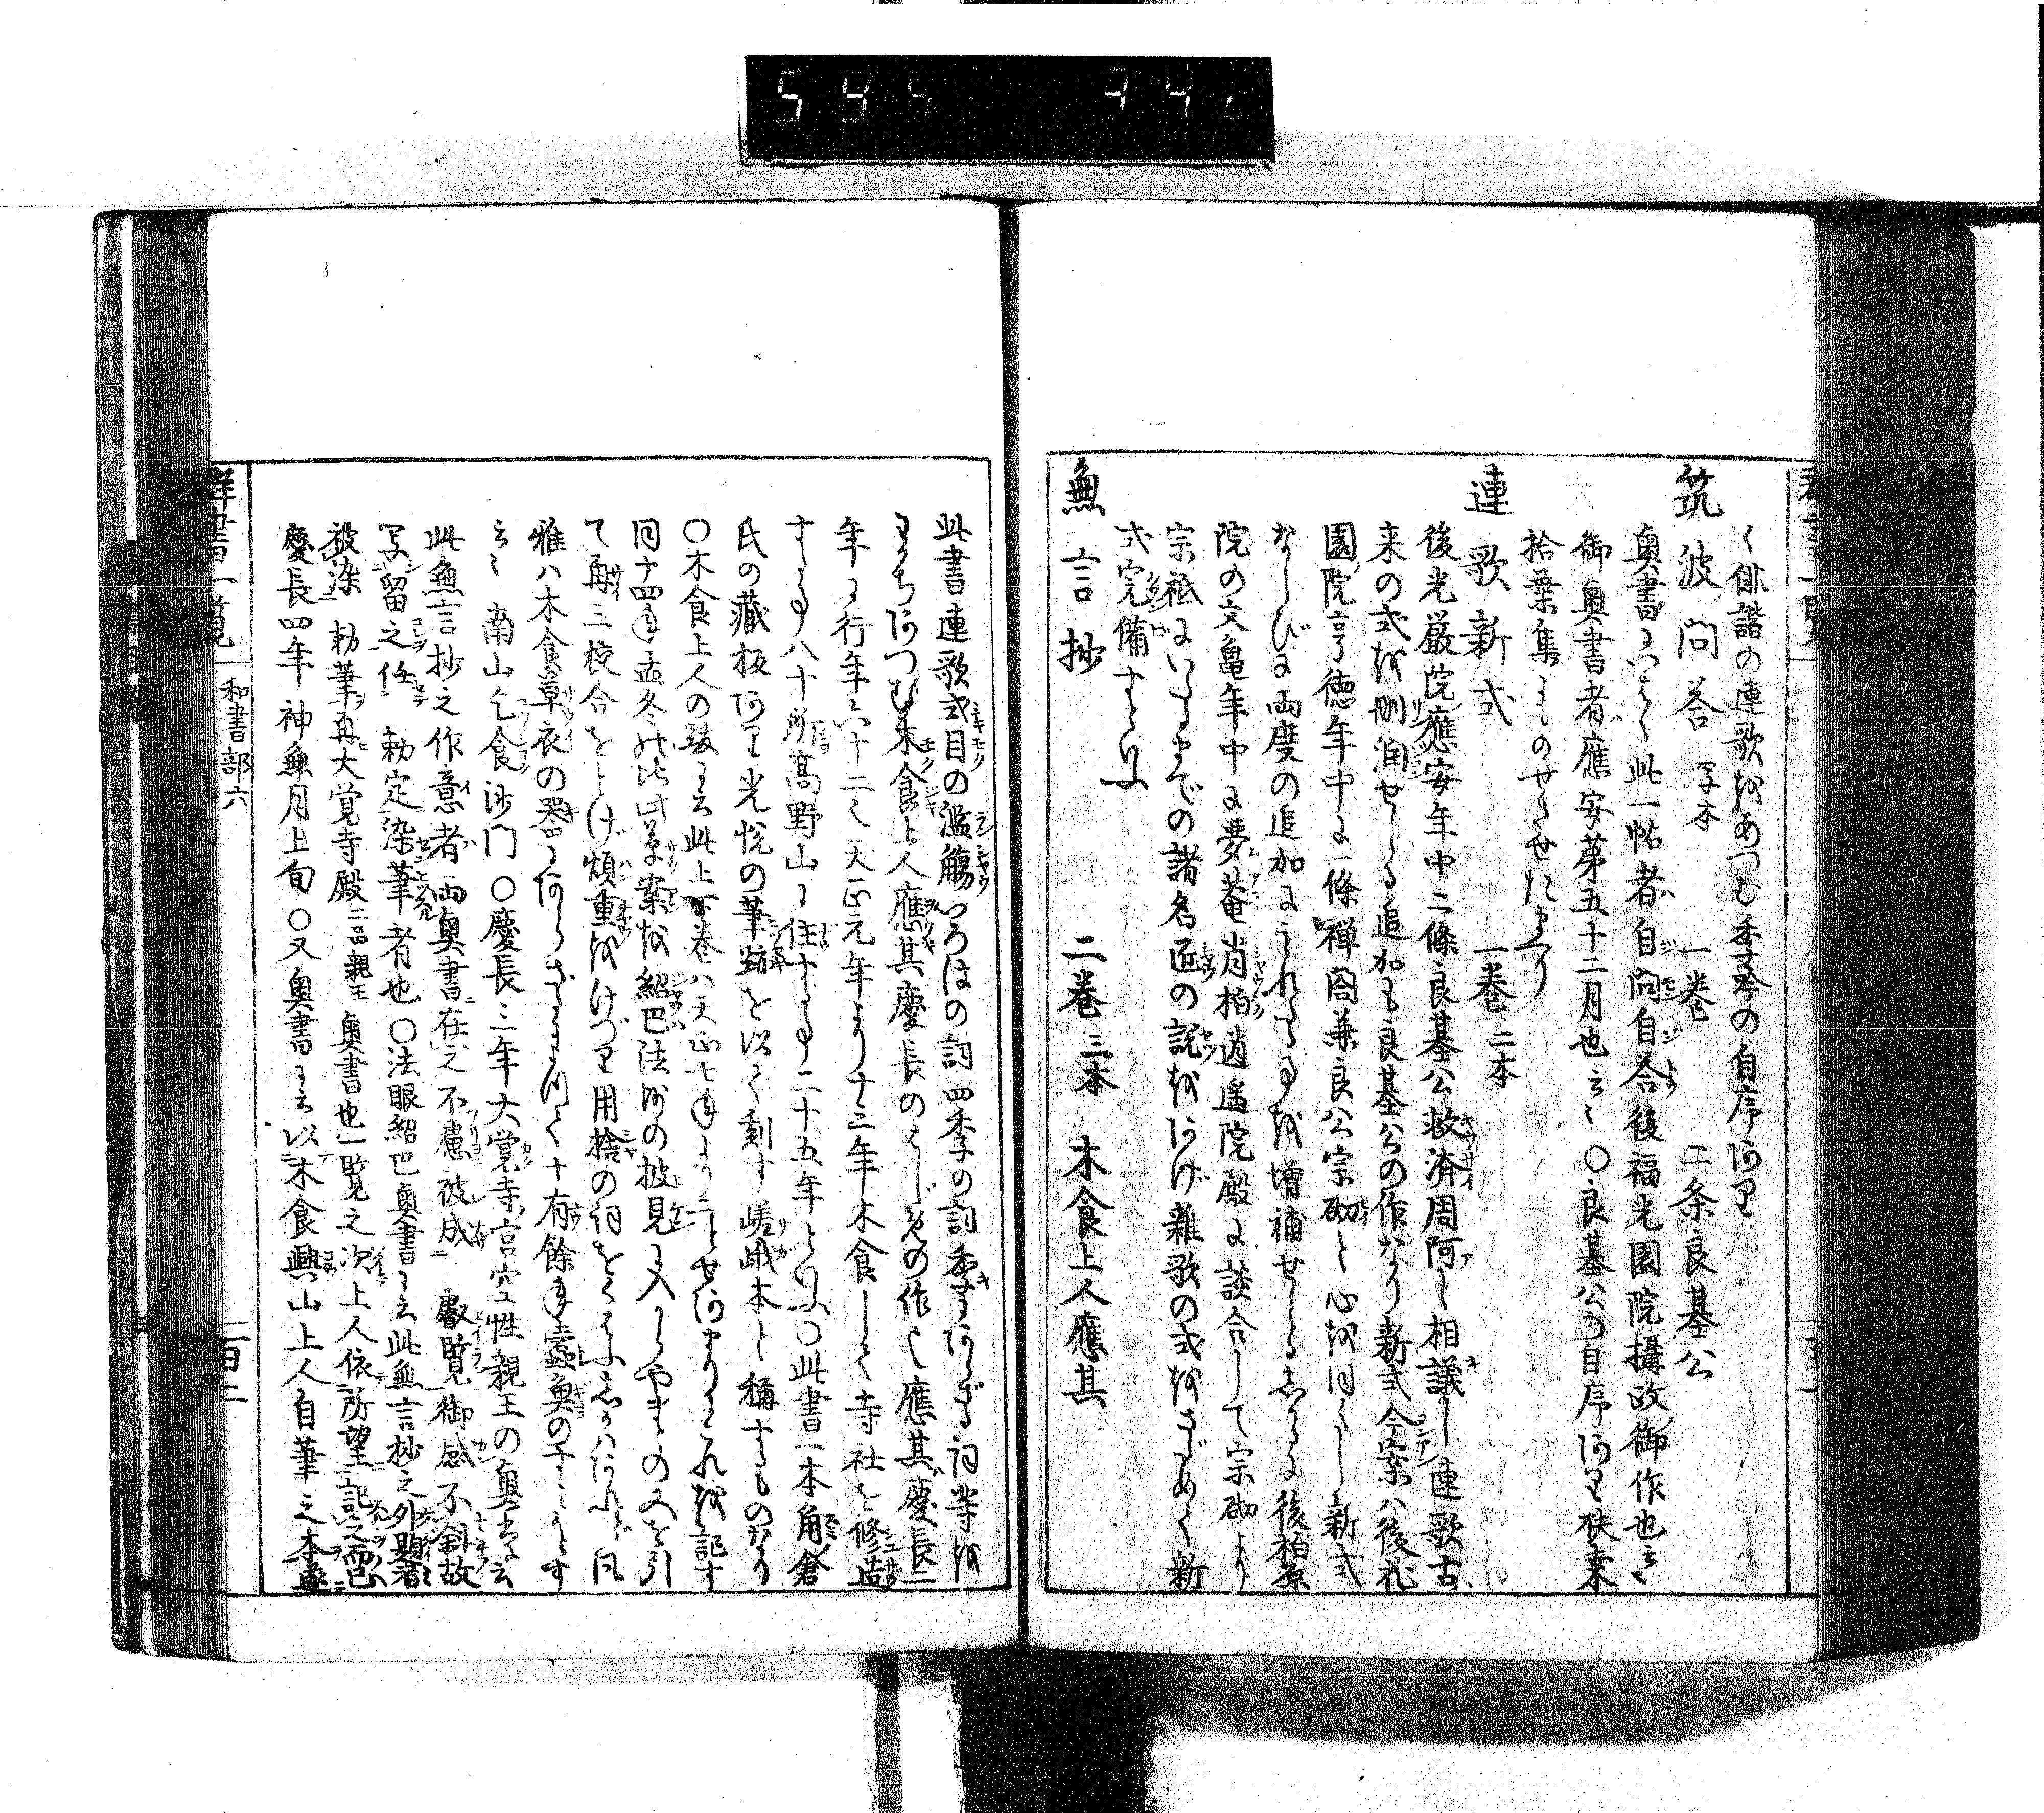 く俳諧の連歌をあつむ季吟の自序あり
筑波問答 写本 一巻 二条良基公
奥書にいはく此一帖者自問自答後福光園院摂政御作也云々
御奥書者應安第五十二月也云々〇良基公の自序あり扶桒
拾葉集にものせさせたまへり
連歌新式 一巻 二本
後光厳院應安年中二條良基公救済周阿と相議し連歌古
来の式を刪潤せしる追加も良基公の作なり新式今案ハ後花
園院亨徳年中に一條禅閤兼良公宗砌と心を同くし新式
ならびに両度の追加にもれたる事を増補せしるしかるに後柏原
院の文亀年中に夢菴肖柏逍遥院殿に談合して宗砌より
宗祇にいたるまでの諸名匠の説をあげ雑歌の式をさだめて新
式完備すといふ
無言抄 二巻 三本 木食上人應其
此書連歌式目の濫觴いろはの詞四季の詞季にあらざる詞等を
わかちあつむ木食上人應其慶長のはじめの作也應其ハ慶長二
年に行年六十二也天正元年より十三年木食して寺社を修造
する事八十所高野山に住する事二十五年といふ〇此書一本角倉
氏の藏板あり光悦の筆跡を以て刻す嵯峨本と稱するものなり
〇木食上人の跋に云此上下巻ハ天正七年より二とせあまりにこれを記す
同十四年孟冬の比此草案を紹巴法橋の披見に入しやまの又を引
て再三校合をとげ煩重をけづり用捨の詞をくはふしかハあれど风
雅ハ木食草衣の器にあらざるまゝ十有餘年蠧奥の
云々南山乞食沙門〇慶長三年大覚寺宮空性親王の奥書に云
此無言抄之作意者両奥書在之不慮被成 叡覧御感不斜故
写留之任 勅定染筆者也〇法眼紹巴奥書に云此無言抄之外題者
被染 勅筆再大覚寺殿二品親王奥書也一覧之次上人依所望記之而已
慶長四年神無月上旬〇又奥書に云以木食興山上人自筆之本
群書一覧 和書部六 二百二